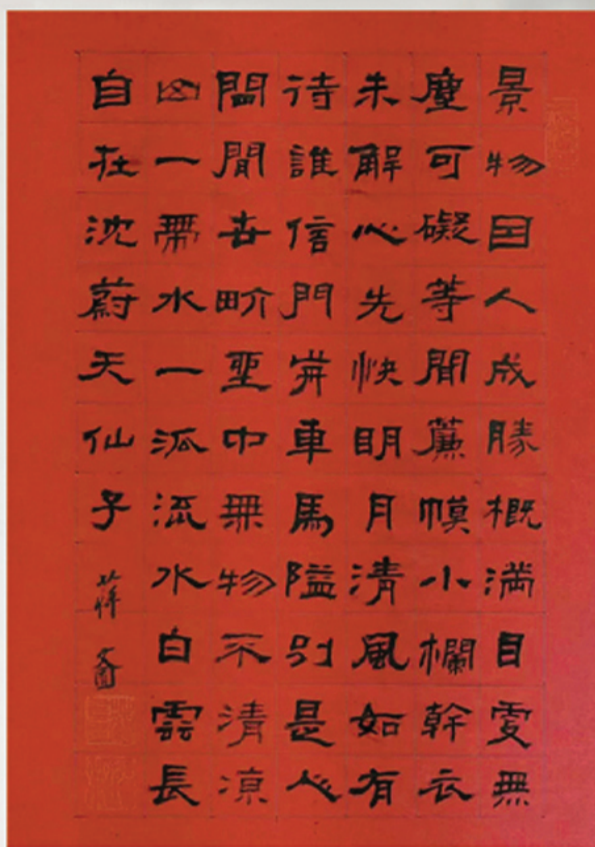 景物因人成勝概滿目更無
塵可礙等閒簾幙小欄幹衣
未解心先快明月清風如有
待誰信門前車馬隘別是人
間閒世界坐中無物不清涼
山一帶水一派流水白雲長
自在沈蔚天仙子